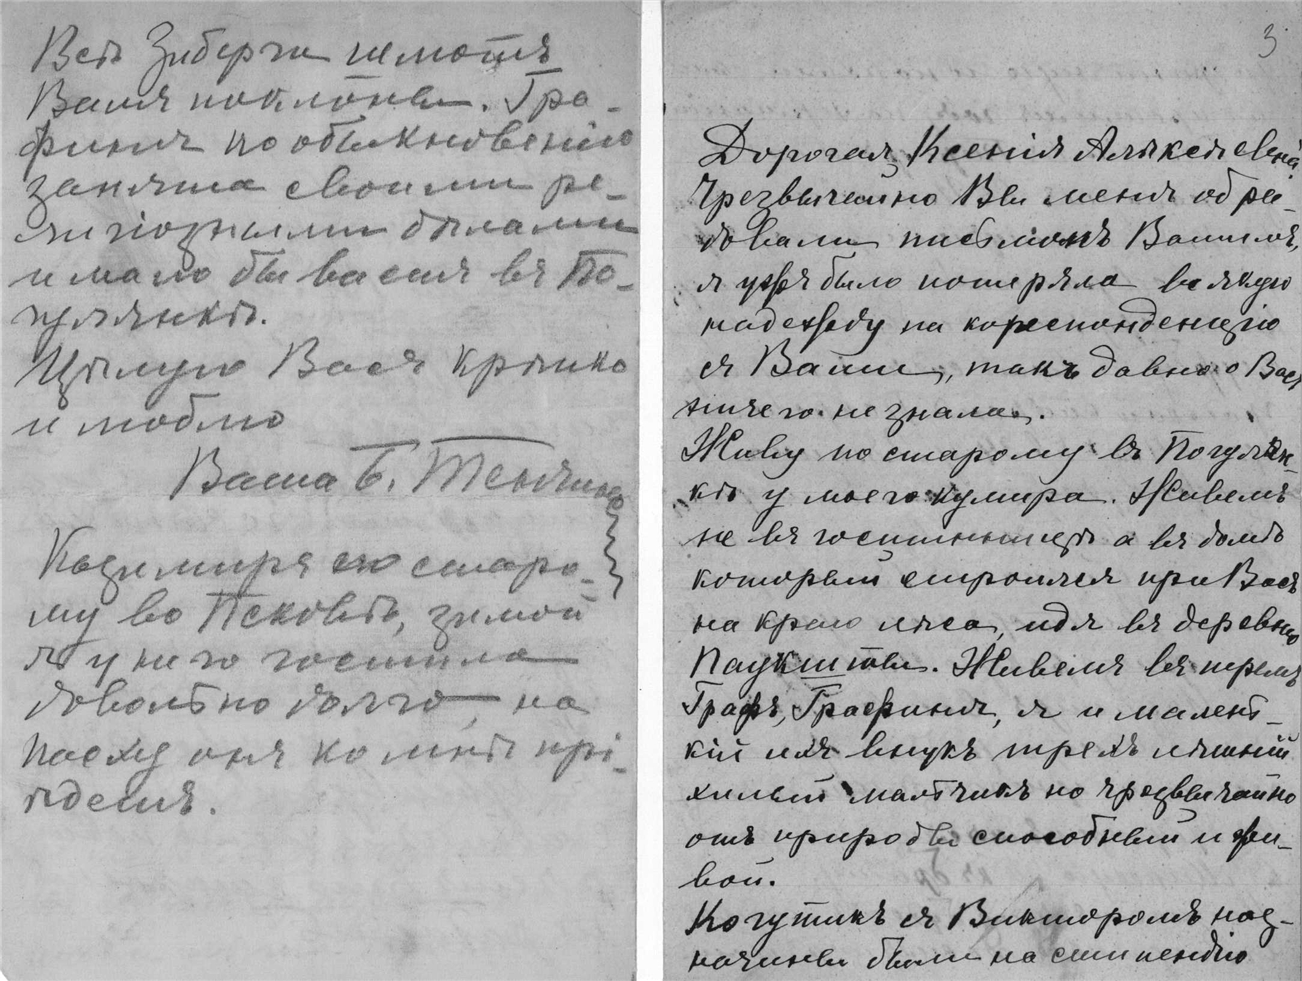 Всѣ Зиберги шлютъ
Вамъ поклоны. Гра-
финя по обыкновенію
занята своими ре-
лигіозными дѣлами
и мало бываетъ въ По-
гулянкѣ.
Цѣлую Васъ крѣпко
и люблю
Ваша Б.
Казимиръ по старо-
му во Псковѣ, зимой
я у него гостила
довольно долго, на
пасху онъ ко мнѣ прі-
ѣдетъ.
3
Дорогая Ксенія Алексѣевна
Чрезвычайно Вы меня обра-
довали письмомъ Вашимъ,
я уже было потеряла всякую
надежду на кореспонденцію
съ Вами, такъ давно о Васъ
ничего не знала.
Живу по старому въ Погулян-
кѣ у моего кумира. Живемъ
не въ гостинницѣ а въ домѣ
который строился при Васъ
на краю лѣса, идя въ деревню
Паукшты. Живемъ въ троемъ
Графъ, Графиня, я и малень-
кій ихъ внукъ трехъ лѣтній
хилый мальчикъ но чрезвычайно
отъ природы способный и жи-
вой.
Когутикъ съ Викторомъ наз-
начены были на стипендію